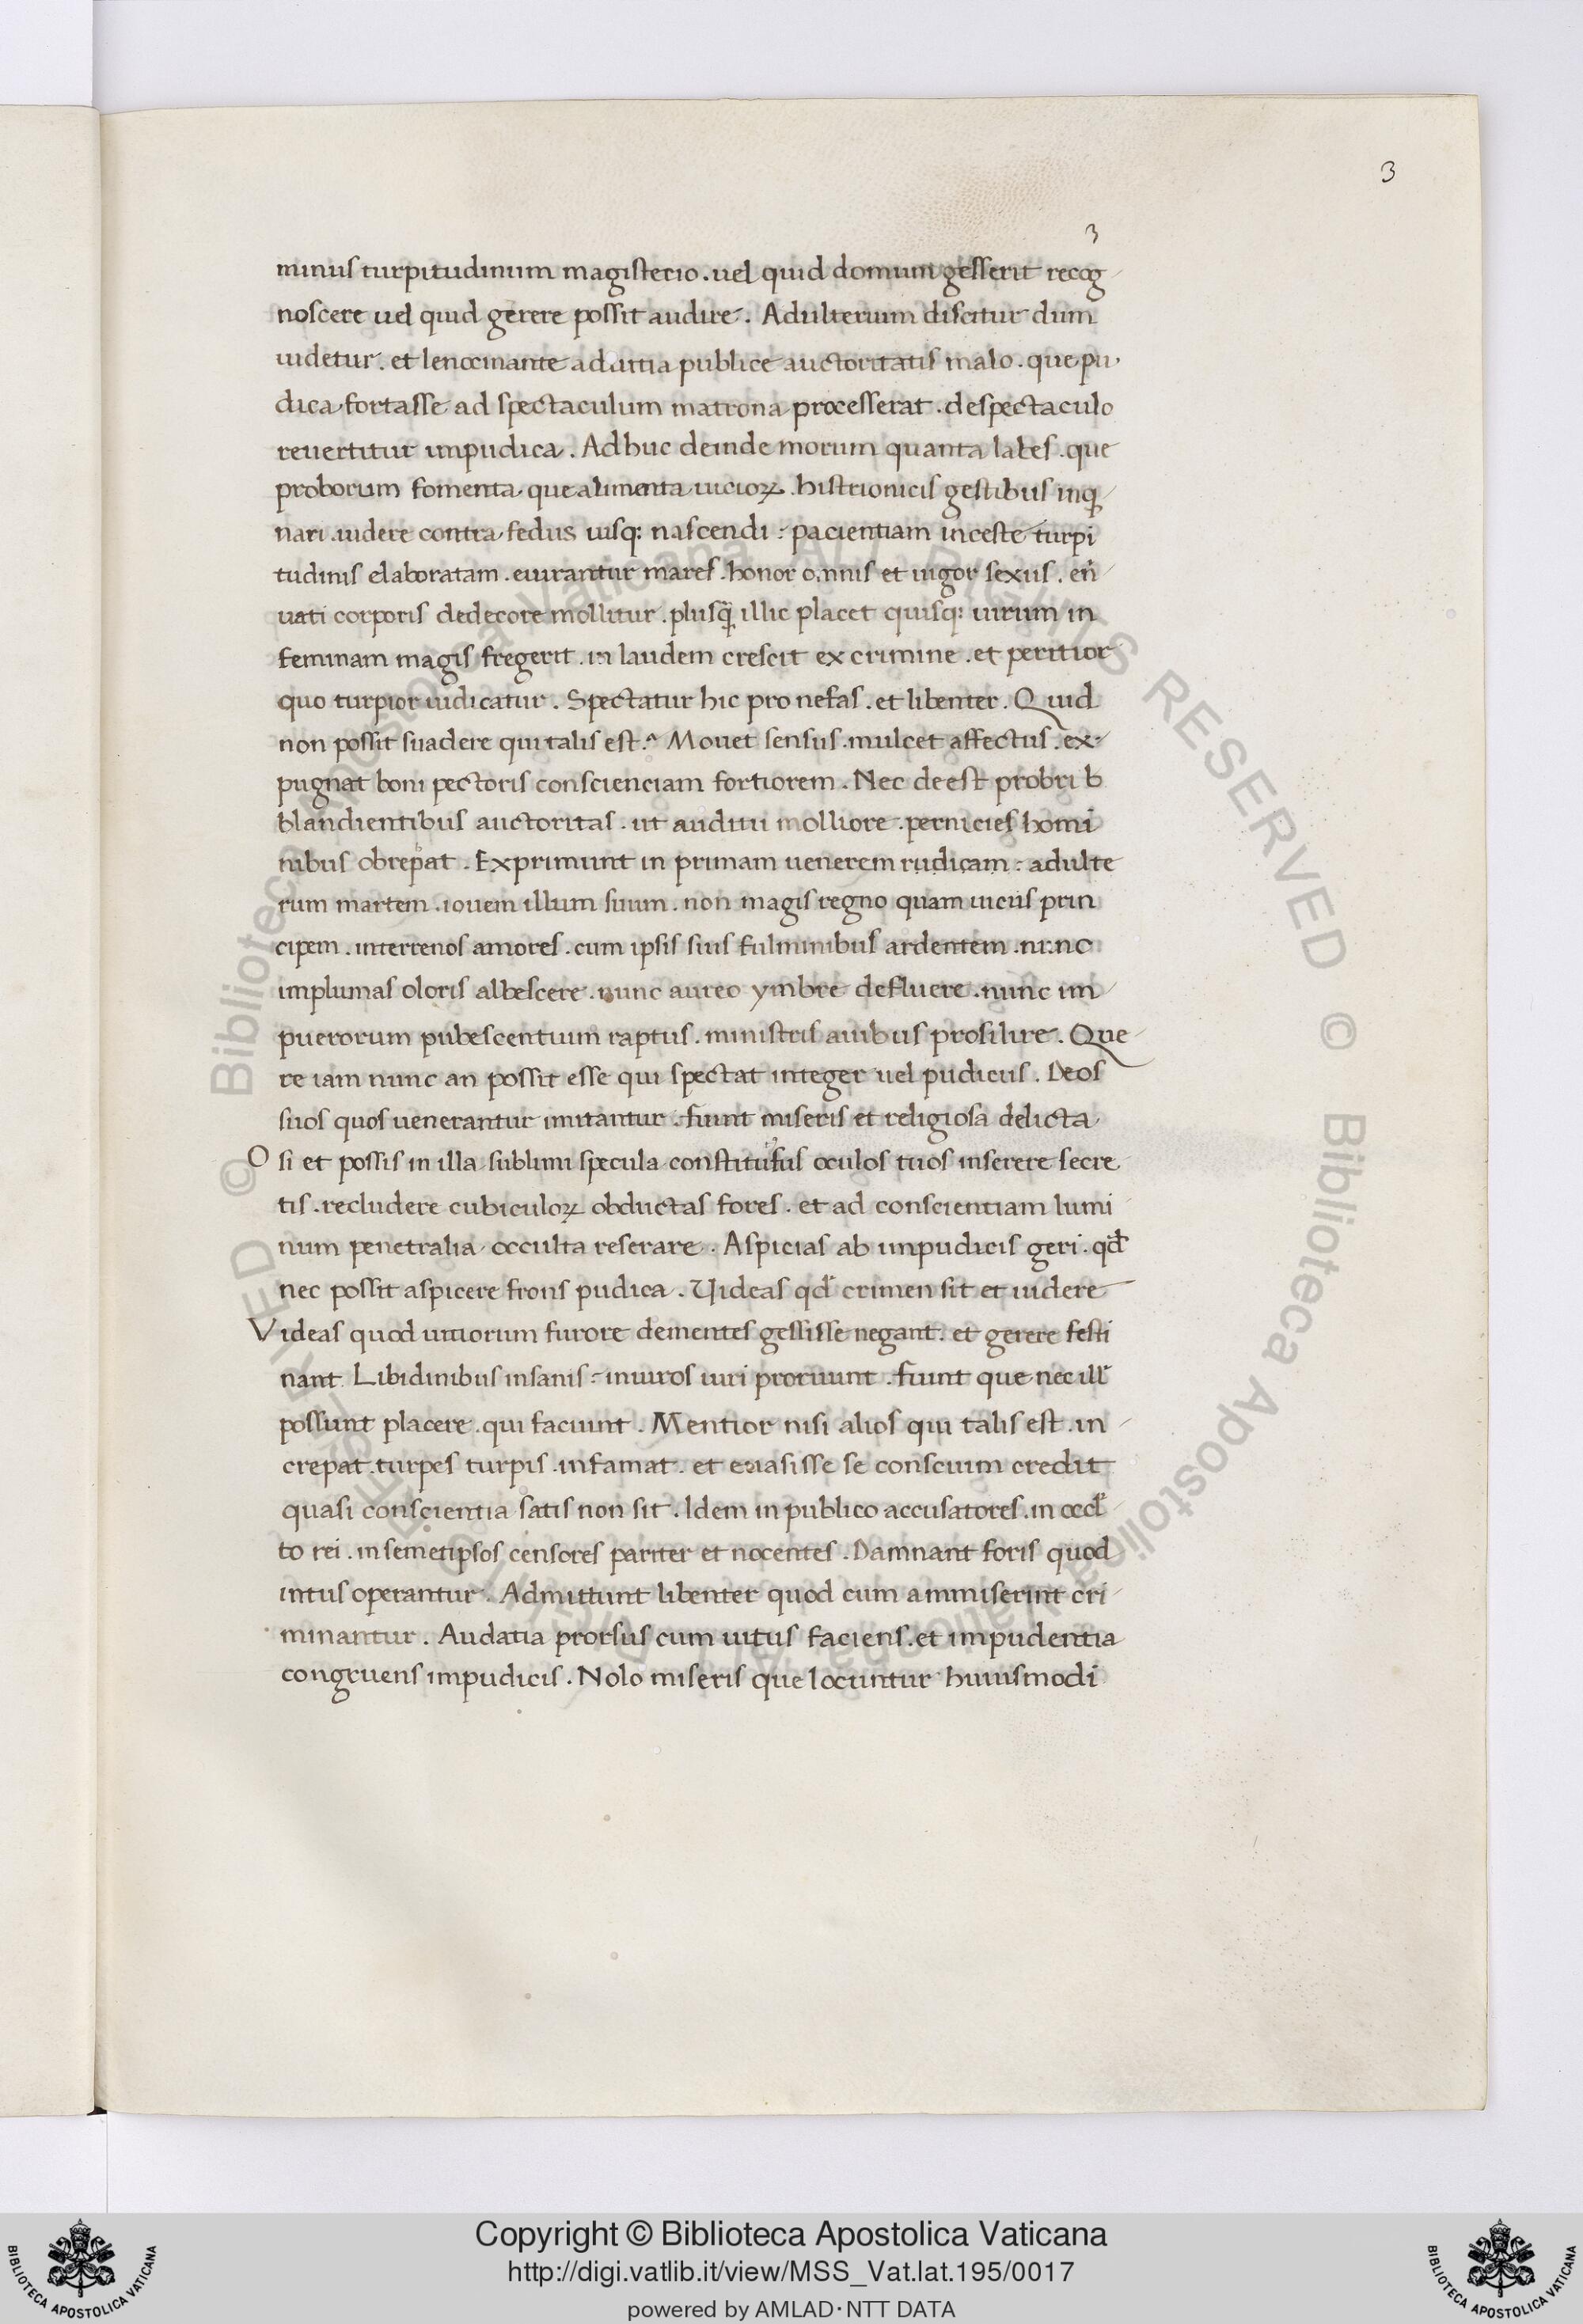 3
3
minus turpitudinum magisterio . uel quid domum gesserit recog
noscere uel quid gerere possit audire . Adulterium discitur dum
uidetur . et lenocinante ad uitia publice auctoritatis malo . que pu
dica fortasse ad spectaculum matrona processerat . despectaculo
reuertitur impudica . Adhuc deinde morum quanta labes . que
proborum fomenta que alimenta uicioꝝ . histrionicis gestibus inq
nari . uidere contra fedus iusq: nascendi : pacientiam inceste turpi
tudinis elaboratam . euirantur mares . honor omnis et uigor sexus . en̄
uati corporis dedecore mollitur . plusq̄ illic placet quisq: uirum in
feminam magis fregerit . in laudem crescit ex crimine . et peritior
quo turpior iudicatur . Spectatur hic pro nefas . et libenter . Quid
non possit suadere qui talis est . Mouet sensus . mulcet affectus . ex
pugnat boni pectoris conscienciam fortiorem . Nec deest probri b
blandientibus auctoritas . ut auditu molliore . pernicies homi
nibus obrepat . Exprimunt in primam uenerem rudicam : adulte
rum martem . iouem illum suum . non magis regno quam uiciis prin
cipem . interrenos amores . cum ipsis suis fulminibus ardentem . nunc
implumas oloris albescere . nunc aureo ymbre defluere . nunc im
puerorum pubescentium raptus . ministris auibus prosilire . Que
re iam nunc an possit esse qui spectat integer uel pudicus . Deos
suos quos uenerantur imitantur . fiunt miseris et religiosa delicta
O si et possis in illa sublimi specula constitutus oculos tuos inserere secre
tis . recludere cubiculoꝝ obductas fores . et ad conscientiam lumi
num penetralia occulta reserare . Aspicias ab impudicis geri . qd̄
nec possit aspicere frons pudica . Uideas qd̄ crimen sit et uidere
Videas quod uitiorum furore dementes gessisse negant . et gerere festi
nant Libidinibus insanis : inuiros uiri proruunt . fiunt que nec ill̄
possunt placere . qui faciunt . Mentior nisi alios qui talis est . in
crepat . turpes turpis . infamat . et euasisse se conscium credit
quasi conscientia satis non sit . Idem in publico accusatores . in occl̄
to rei . in semetipsos censores pariter et nocentes . Damnant foris quod
intus operantur . Admittunt libenter quod cum ammiserint cri
minantur . Audatia prorsus cum uitus faciens . et impudentia
congruens impudicis . Nolo miseris que locuntur huiusmodi
Copyright © Biblioteca Apostolica Vaticana
http://digi.vatlib.it/view/MSS_Vat.lat.195/0017
powered by AMLAD·NTT DATA
BIBLIOTECA APOSTOLICA VATICANA
BIBLIOTECA APOSTOLICA VATICANA